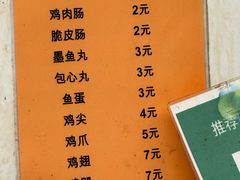 鸡肉肠 2元
脆皮肠 2元
墨鱼丸 3元
包心丸 3元
鱼蛋 3元
鸡尖 4元
鸡爪 5元
鸡翅 7元
7元
推荐